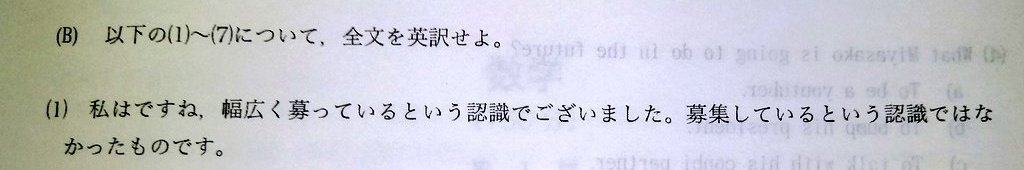 (B) 以下の(1)～(7)について，全文を英訳せよ。
(1) 私はですね，幅広く募っているという認識でございました。募集しているという認識ではな
かったものです。